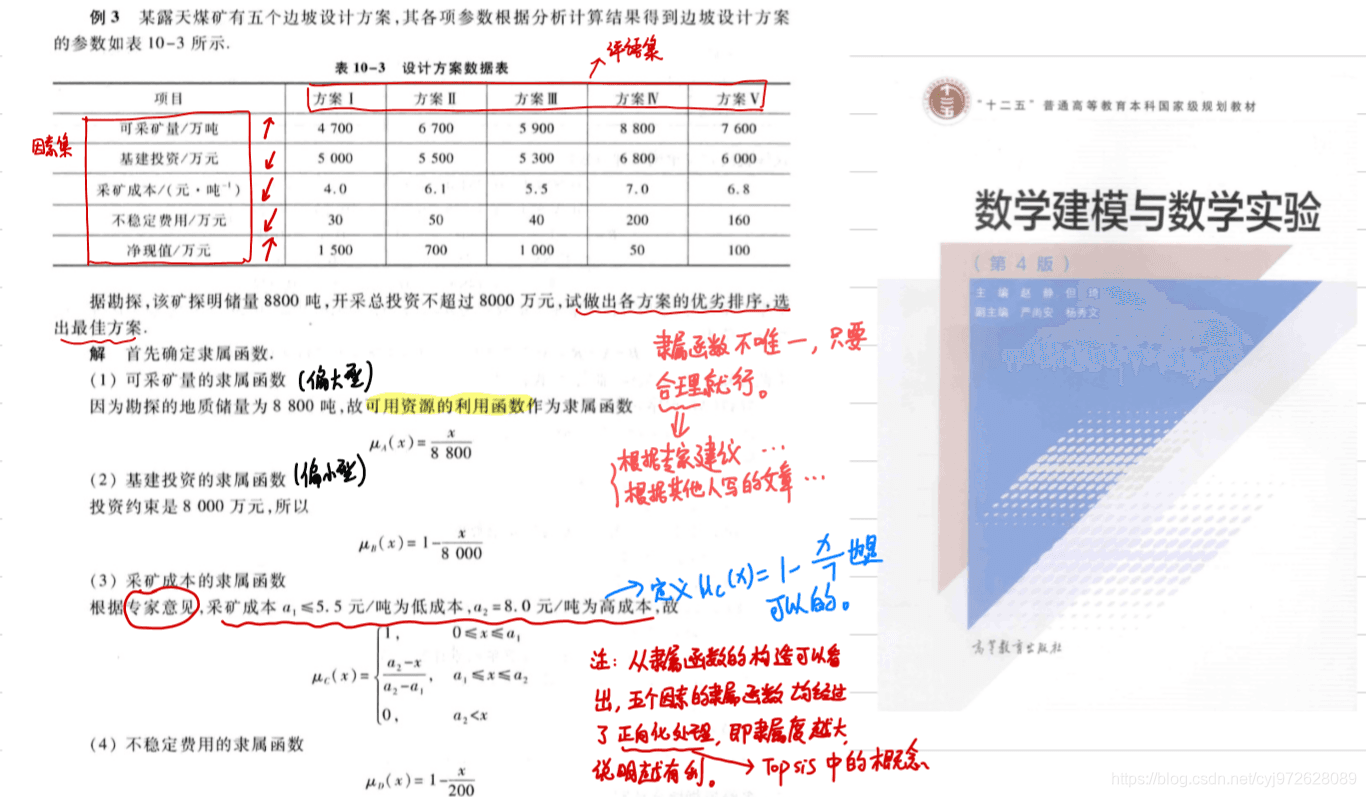 例 3 某露天煤矿有五个边坡设计方案,其各项参数根据分析计算结果得到边坡设计方案
的参数如表 10-3 所示.
评语集
表 10-3 设计方案数据表
项目 方案Ⅰ 方案Ⅱ 方案Ⅲ 方案Ⅳ 方案Ⅴ
因素集
可采矿量/万吨 ↑ 4 700 6 700 5 900 8 800 7 600
基建投资/万元 ↙ 5 000 5 500 5 300 6 800 6 000
采矿成本/(元·吨⁻¹) ↙ 4.0 6.1 5.5 7.0 6.8
不稳定费用/万元 ↙ 30 50 40 200 160
净现值/万元 ↑ 1 500 700 1 000 50 100
据勘探,该矿探明储量 8800 吨,开采总投资不超过 8000 万元,试做出各方案的优劣排序,选
出最佳方案.
解 首先确定隶属函数.
(1) 可采矿量的隶属函数 (偏大型)
因为勘探的地质储量为 8 800 吨,故可用资源的利用函数作为隶属函数
μA(x)=x/8 800
(2) 基建投资的隶属函数 (偏小型)
投资约束是 8 000 万元,所以
μB(x)=1-x/8 000
(3) 采矿成本的隶属函数
根据专家意见,采矿成本 a₁≤5.5 元/吨为低成本,a₂=8.0 元/吨为高成本,故
1, 0≤x≤a₁
μC(x)= (a₂-x)/(a₂-a₁), a₁≤x≤a₂
0, a₂<x
(4) 不稳定费用的隶属函数
μD(x)=1-x/200
隶属函数不唯一,只要
合理就行。
⇓
根据专家建议 …
根据其他人写的文章 …
→ 定义 μC(x)=1-x/7 也是
可以的。
注: 从隶属函数的构造可以看
出,五个因素的隶属函数均经过
了正向化处理,即隶属度越大,
说明越有利。 → Topsis 中的概念
"十二五"普通高等教育本科国家级规划教材
数学建模与数学实验
(第 4 版)
主 编 赵 静 但 琦
副主编 严尚安 杨秀文
高等教育出版社
https://blog.csdn.net/cyj972628089